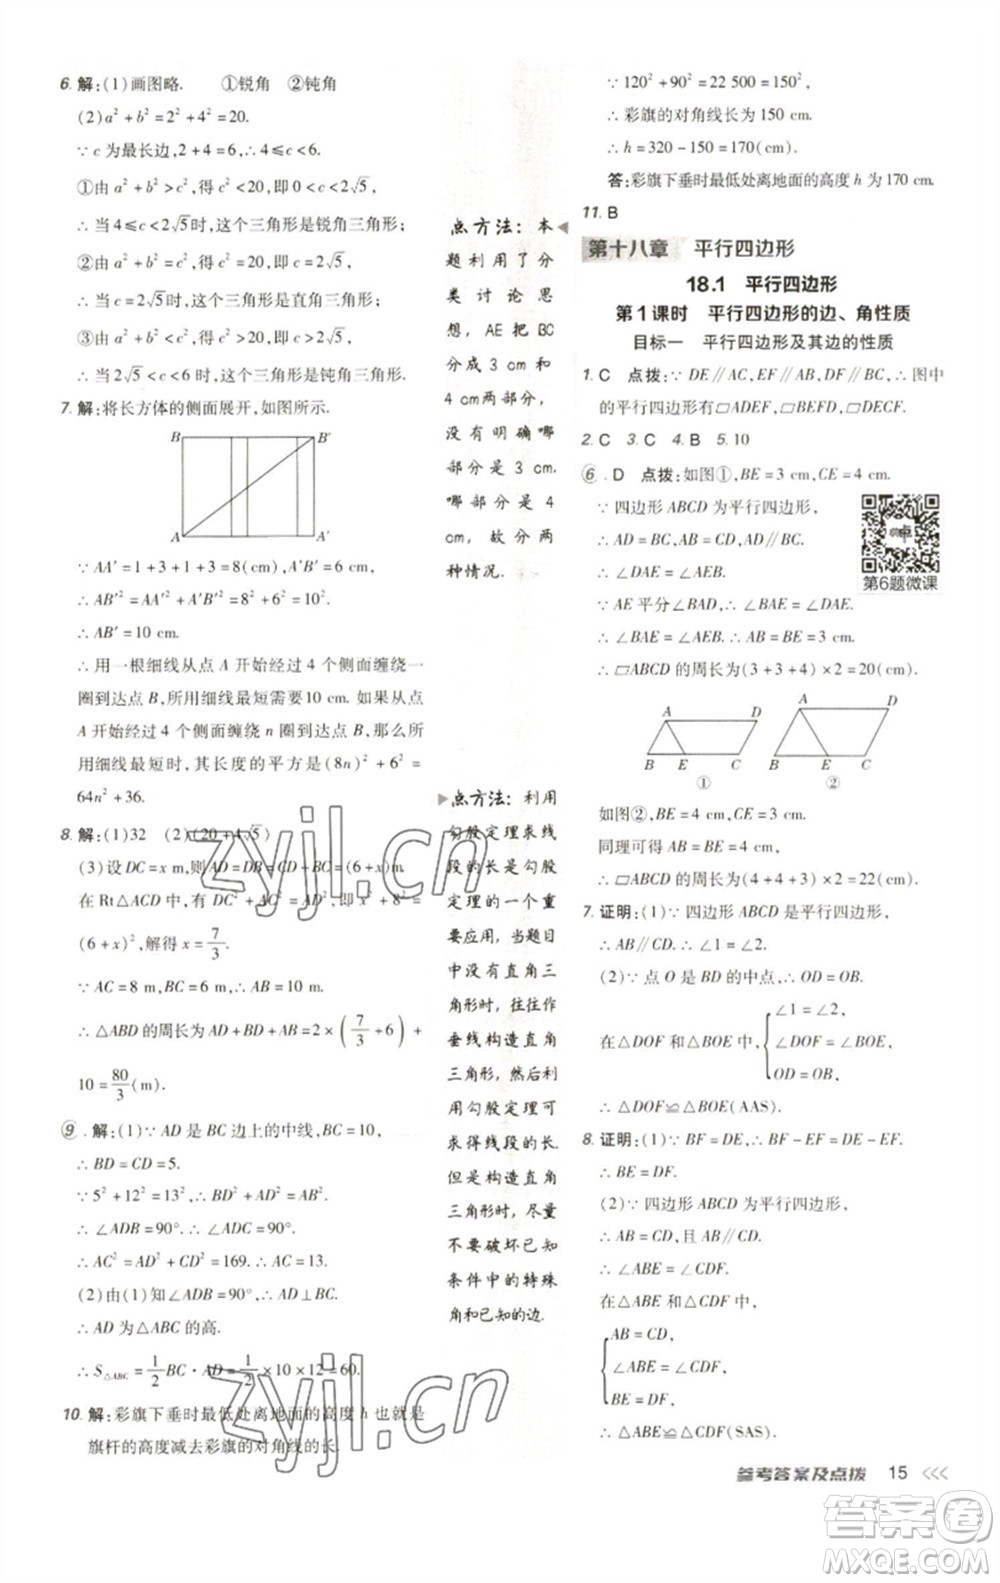 6. 解:(1)画图略. ①锐角 ②钝角
(2)a²+b²=2²+4²=20.
∵c为最长边,2+4=6,∴4≤c<6.
①由a²+b²>c²,得c²<20,即0<c<2√5,
∴当4≤c<2√5时,这个三角形是锐角三角形;
②由a²+b²=c²,得c²=20,即c=2√5,
∴当c=2√5时,这个三角形是直角三角形;
③由a²+b²<c²,得c²>20,即c>2√5,
∴当2√5<c<6时,这个三角形是钝角三角形.
7. 解:将长方体的侧面展开,如图所示.
B B′
A A′
∵AA′=1+3+1+3=8(cm),AB=6 cm.
∴AB′²=AA′²+A′B′²=8²+6²=100,
∴AB′=10 cm.
∴用一根细线从点A开始经过4个侧面缠绕一
圈到达点B,所用细线最短需要10 cm. 如果从点
A开始经过4个侧面缠绕n圈到达点B,那么所
用细线最短时,其长度的平方是(8n)²+6²=
64n²+36.
8. 解:(1)32 (2)(20+4√5)
(3)设DC=x m,则AD=DB=CD+BC=(6+x)m.
在Rt△ACD中,有DC²+AC²=AD²,即x²+8²=
(6+x)²,解得x=7/3.
∵AC=8 m,BC=6 m,∴AB=10 m,
∴△ABD的周长为AD+BD+AB=2×(7/3+6)+
10=80/3(m).
9. 解:(1)∵AD是BC边上的中线,BC=10,
∴BD=CD=5.
∵5²+12²=13²,∴BD²+AD²=AB²,
∴∠ADB=90°. ∴∠ADC=90°.
∴AC²=AD²+CD²=169. ∴AC=13.
(2)由(1)知∠ADB=90°,∴AD⊥BC.
∴AD为△ABC的高.
∴S△ABC=1/2BC·AD=1/2×10×12=60.
10. 解:彩旗下垂时最低处离地面的高度h也就是
旗杆的高度减去彩旗的对角线的长.
点方法:本
题利用了分
类讨论思
想,AE把BC
分成3 cm和
4 cm两部分,
没有明确哪
部分是3 cm.
哪部分是4
cm,故分两
种情况.
点方法:利用
勾股定理求线
段的长是勾股
定理的一个重
要应用,当题目
中没有直角三
角形时,往往作
垂线构造直角
三角形,然后利
用勾股定理可
求得线段的长.
但是构造直角
三角形时,尽量
不要破坏已知
条件中的特殊
角和已知的边.
∵120²+90²=22 500=150²,
∴彩旗的对角线长为150 cm.
∴h=320-150=170(cm)
答:彩旗下垂时最低处离地面的高度h为170 cm.
11. B
第十八章 平行四边形
18.1 平行四边形
第1课时 平行四边形的边、角性质
目标一 平行四边形及其边的性质
1. C 点拨:∵DE∥AC,EF∥AB,DF∥BC,∴图中
的平行四边形有▱ADEF,▱BEFD,▱DECF.
2. C 3. C 4. B 5. 10
6. D 点拨:如图①,BE=3 cm,CE=4 cm.
∵四边形ABCD为平行四边形,
∴AD=BC,AB=CD,AD∥BC.
∴∠DAE=∠AEB.
∵AE平分∠BAD,∴∠BAE=∠DAE.
∴∠BAE=∠AEB. ∴AB=BE=3 cm.
第6题微课
∴▱ABCD的周长为(3+3+4)×2=20(cm);
A D A D
B E C B E C
① ②
如图②,BE=4 cm,CE=3 cm.
同理可得AB=BE=4 cm.
∴▱ABCD的周长为(4+4+3)×2=22(cm).
7. 证明:(1)∵四边形ABCD是平行四边形,
∴AB∥CD. ∴∠1=∠2.
(2)∵点O是BD的中点,∴OD=OB.
∠1=∠2,
在△DOF和△BOE中,∠DOF=∠BOE,
OD=OB,
∴△DOF≌△BOE(AAS).
8. 证明:(1)∵BF=DE,∴BF-EF=DE-EF.
∴BE=DF.
(2)∵四边形ABCD为平行四边形,
∴AB=CD,且AB∥CD.
∴∠ABE=∠CDF.
在△ABE和△CDF中,
AB=CD,
∠ABE=∠CDF,
BE=DF,
∴△ABE≌△CDF(SAS).
参考答案及点拨 15
zyjl.cn
zyjl.cn
答案圈
MXQE.COM